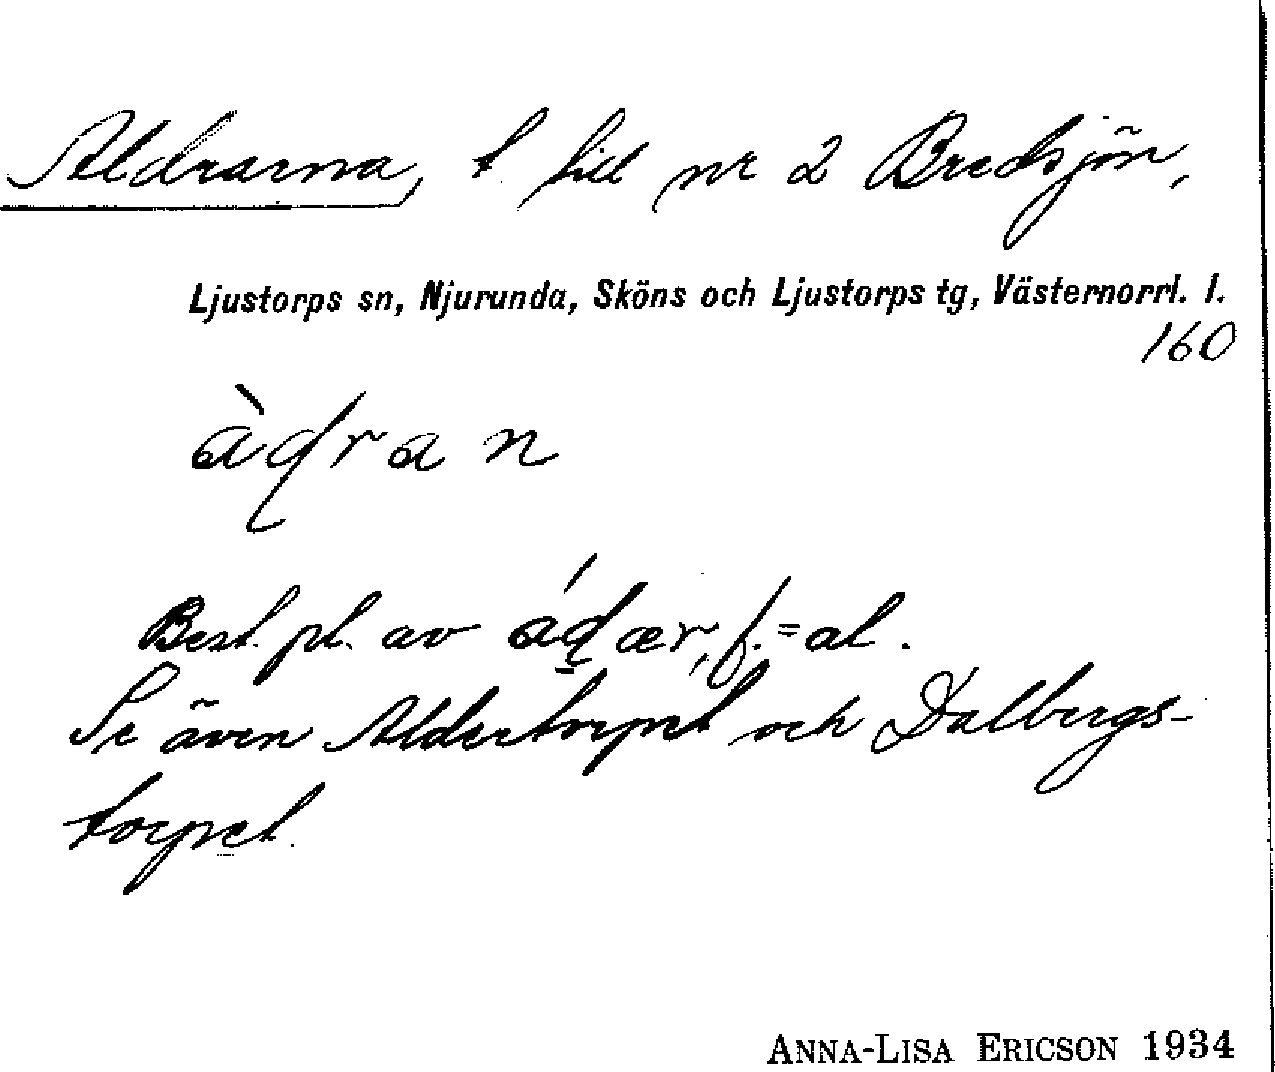 Aldrarna, t. till nr 2 Bredsjön,
Ljustorps sn, Njurunda, Sköns och Ljustorps tg, Västernorrl. l.
160
àɖran
Best. pl. av áɖær, f. = al.
Se även Aldertorpet och Dalbergs-
torpet.
ANNA-LISA ERICSON 1934